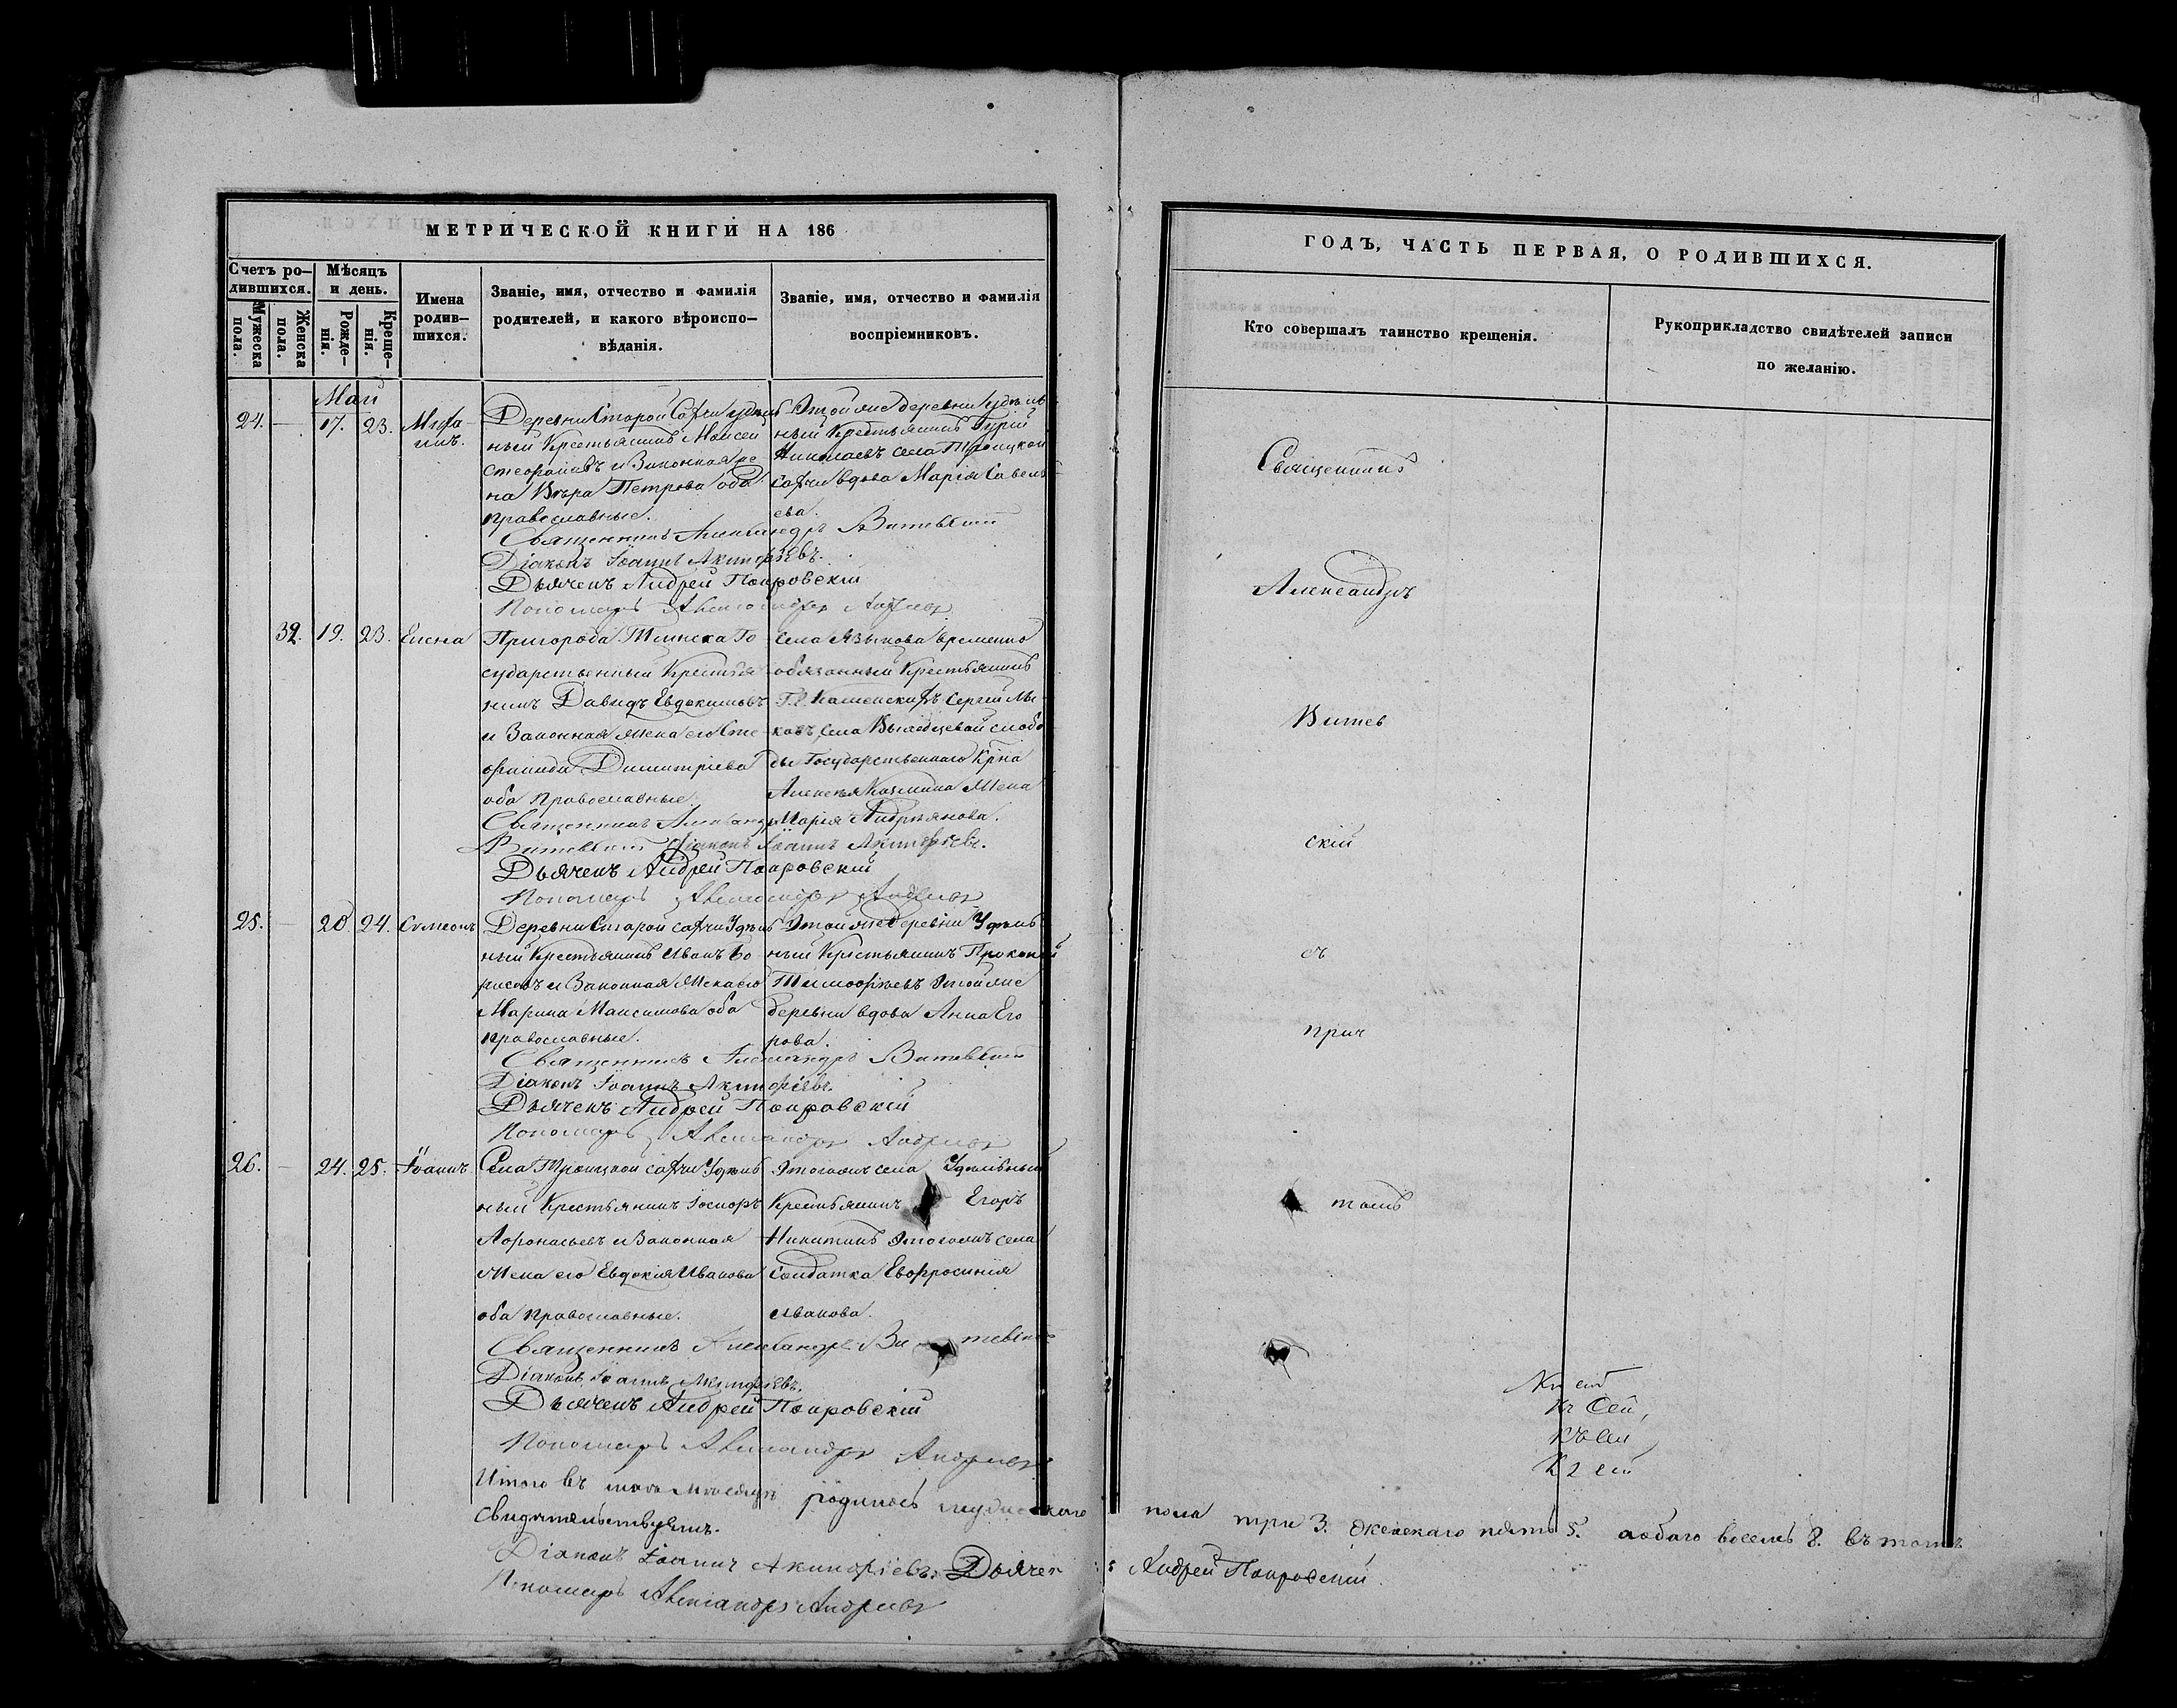 МЕТРИЧЕСКОЙ КНИГИ НА 186
Счетъ ро-
дившихся.
Мужеска
пола.
Женска
пола.
Мѣсяцъ
и день.
Рожде-
нія.
Креще-
нія.
Имена
родив-
шихся.
Званіе, имя, отчество и фамилія
родителей, и какого вѣроиспо-
вѣданія.
Званіе, имя, отчество и фамилія
воспріемниковъ.
Май
24. — 17. 23.
Деревни Старой Сахчи удѣль
ный Крестьянинъ Моисей
и Законная же
на Вѣра Петрова оба
православные.
Этой же деревни удѣль
ный Крестьянинъ Гурій
Николаевъ села Троицкой
Сахчи вдова Марія Савель
ева.
Священникъ Александръ Витевскій
Діаконъ Іоаннъ Акинфіевъ.
Дьячекъ Андрей Покровскій
Пономарь Александръ Андреевъ
32. 19. 23. Елена
Пригорода Тіинска Го
сударственный Крестья
нинъ Давидъ Евдокимовъ
и Законная жена его Сте
фанида Димитріева
оба православные.
Села Языкова временно
обязанный Крестьянинъ
Сергій
слобо
ды Государственнаго Крна
Алексѣя Козмина жена
Марія Андріянова.
Священникъ Александръ
Витевскій Діаконъ Іоаннъ Акинфіевъ.
Дьячекъ Андрей Покровскій
Пономарь Александръ Андреевъ
25. — 20 24. Сумеонъ
Деревни Старой сахчи Удѣль
ный Крестьянинъ Иванъ Бо
рисовъ и Законная жена его
Марина Максимова оба
православные.
Этой же деревни Удѣль
ный Крестьянинъ Прокопій
Тимофѣевъ этой же
деревни вдова Анна Его
рова.
Священникъ Александръ Витевскій
Діаконъ Іоаннъ Акинфіевъ.
Дьячекъ Андрей Покровскій
Пономарь Александръ Андреевъ
26. — 24. 25. Іоаннъ
Села Троицкой сахчи Удѣль
ный Крестьянинъ Іосифъ
Афонасьевъ и Законная
жена его Евдокія Иванова
оба православные.
Этогожъ села Удѣльный
Крестьянинъ Егоръ
Никитинъ этогожъ села
Солдатка Евфросинія
Иванова.
Священникъ Александръ Витевскій
Діаконъ Іоаннъ Акинфіевъ.
Дьячекъ Андрей Покровскій
Пономарь Александръ Андреевъ
Итого въ маѣ мѣсяцѣ родилось мужескаго
свидѣтельствуемъ.
Діаконъ Іоаннъ Акинфіевъ. Дьячек
Пономарь Александръ Андреевъ
ГОДЪ, ЧАСТЬ ПЕРВАЯ, О РОДИВШИХСЯ.
Кто совершалъ таинство крещенія.
Рукоприкладство свидѣтелей записи
по желанію.
Священникъ
Александръ
Витев
скій
съ
прич
томъ
пола три 3. женскаго пять 5. а обаго восемь 8. въ томъ
Андрей Покровскій.